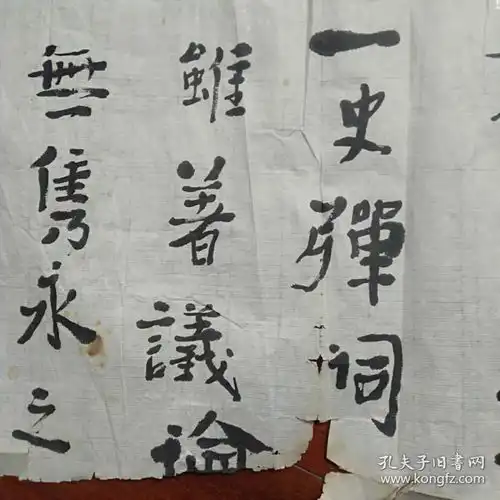 一史彈詞
雖著議論
無雋永之
孔夫子旧书网
www.kongfz.com